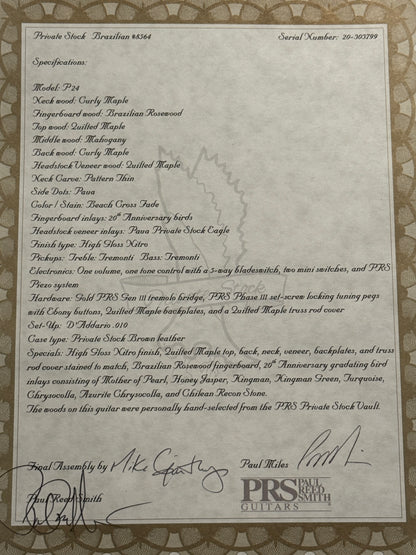 Private Stock Brazilian #8364 Serial Number: 20-303799
Specifications:
Model: P24
Neck wood: Curly Maple
Fingerboard wood: Brazilian Rosewood
Top wood: Quilted Maple
Middle wood: Mahogany
Back wood: Curly Maple
Headstock Veneer wood: Quilted Maple
Neck Carve: Pattern Thin
Side Dots: Paua
Color / Stain: Beach Cross Fade
Fingerboard inlays: 20th Anniversary birds
Headstock veneer inlays: Paua Private Stock Eagle
Finish type: High Gloss Nitro
Pickups: Treble: Tremonti Bass: Tremonti
Electronics: One volume, one tone control with a 5-way bladeswitch, two mini switches, and PRS
Piezo system
Hardware: Gold PRS Gen III tremolo bridge, PRS Phase III set-screw locking tuning pegs
with Ebony buttons, Quilted Maple backplates, and a Quilted Maple truss rod cover
Set-Up: D'Addario .010
Case type: Private Stock Brown leather
Specials: High Gloss Nitro finish, Quilted Maple top, back, neck, veneer, backplates, and truss
rod cover stained to match, Brazilian Rosewood fingerboard, 20th Anniversary gradating bird
inlays consisting of Mother of Pearl, Honey Jasper, Kingman, Kingman Green, Turquoise,
Chrysocolla, Azurite Chrysocolla, and Chilean Recon Stone.
The woods on this guitar were personally hand-selected from the PRS Private Stock Vault.
Final Assembly by Mike Paul Miles
Paul Reed Smith
PRS PAUL
REED
SMITH
GUITARS